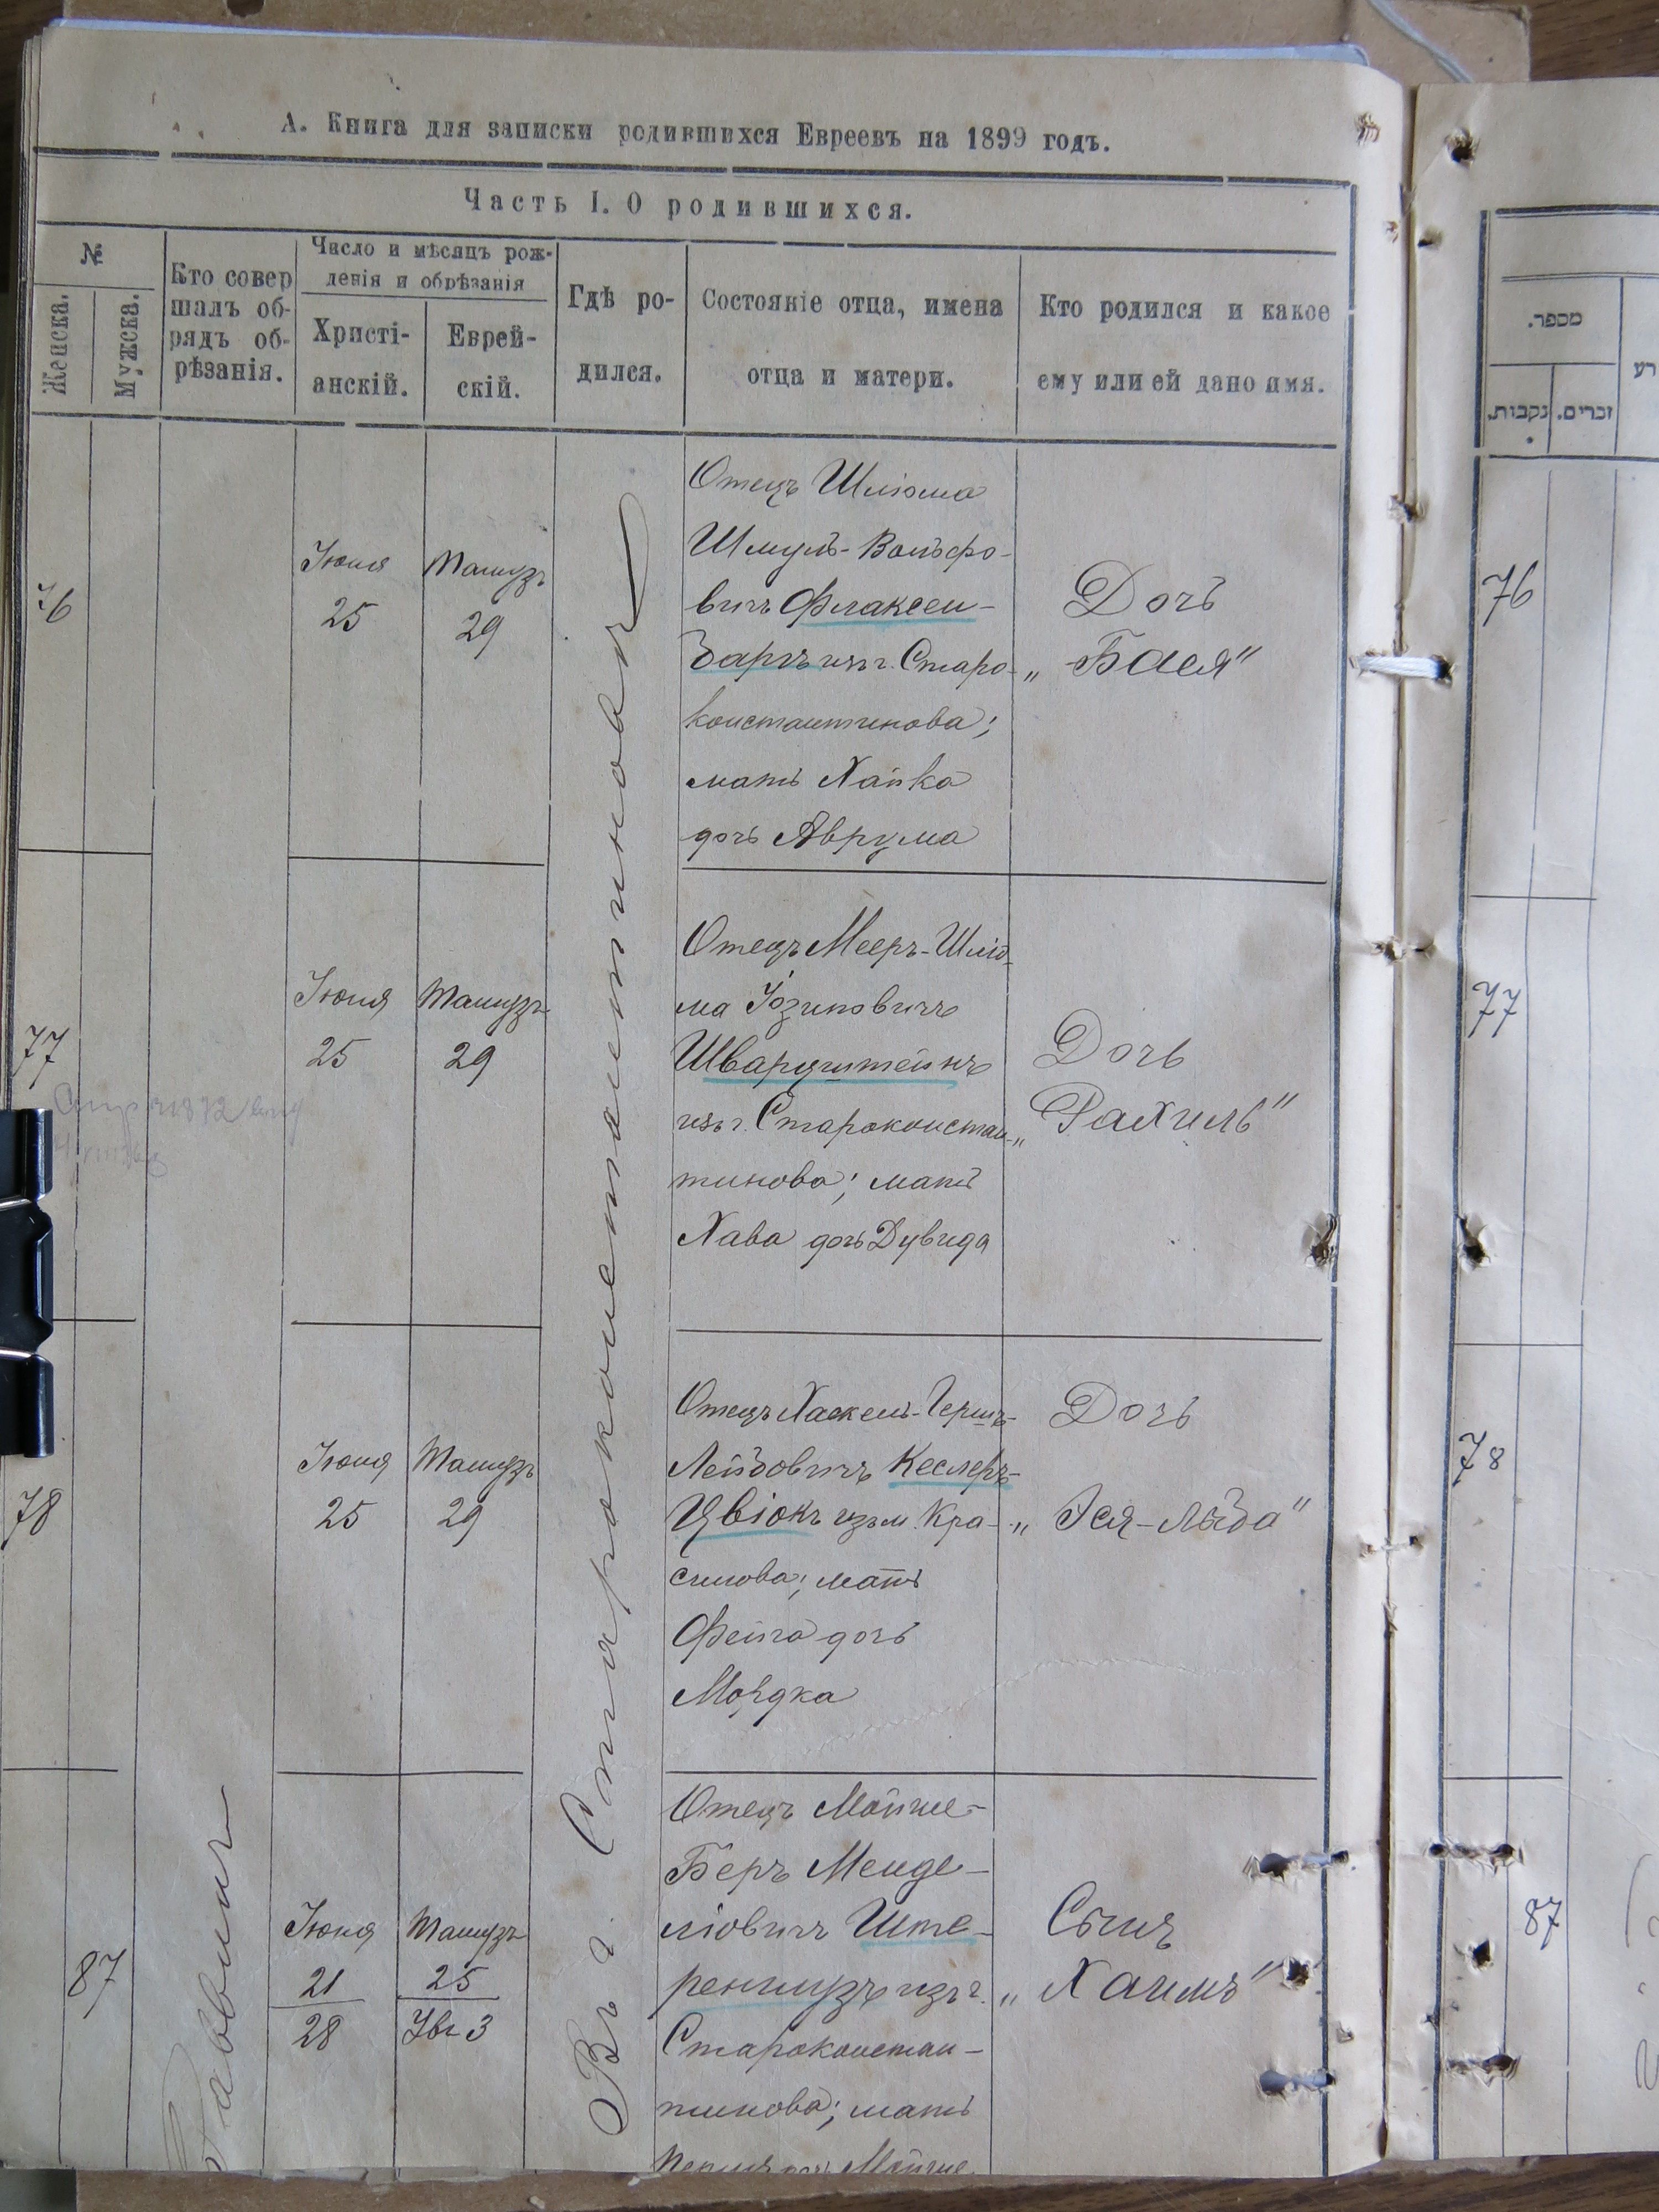 А. Книга для записки родившихся Евреевъ на 1899 годъ.
Часть I. О родившихся.
№
Женска.
Мужска.
Кто совер
шалъ об-
рядъ об-
рѣзанія.
Число и мѣсяцъ рож-
денія и обрѣзанія
Христі-
анскій.
Еврей-
скій.
Гдѣ ро-
дился.
Состояніе отца, имена
отца и матери.
Кто родился и какое
ему или ей дано имя.
Въ г. Староконстантиновѣ
76
Іюня
25
Тамузъ
29
Отецъ Шліома
Шмуль-Вольфо-
вичъ Флаксен-
барцъ изъ г. Старо-
константинова;
мать Хайка
дочь Аврума
Дочь
„Бася"
77
Іюня
25
Тамузъ
29
Отецъ Мееръ-Шліо-
ма Іозиповичъ
Шварцштейнъ
изъ г. Староконстан-
тинова; мать
Хава дочь Дувида
Дочь
„Рахиль"
78
Іюня
25
Тамузъ
29
Отецъ Хаскель-Гершъ-
Лейбовичъ Кеслеръ-
Цвіокъ изъ м. Кра-
силова; мать
Фейга дочь
Мордка
Дочь
„Эся-Лѣба"
87
Раввинъ
Іюня
21
28
Тамузъ
25
Увъ 3
Отецъ Мойше-
Беръ Менде-
ліовичъ Ште-
реншузъ изъ г.
Староконстан-
тинова; мать
дочь Мойше
Сынъ
„Хаимъ"
מספר.
נקבות.
זכרים.
רע
76
77
78
87